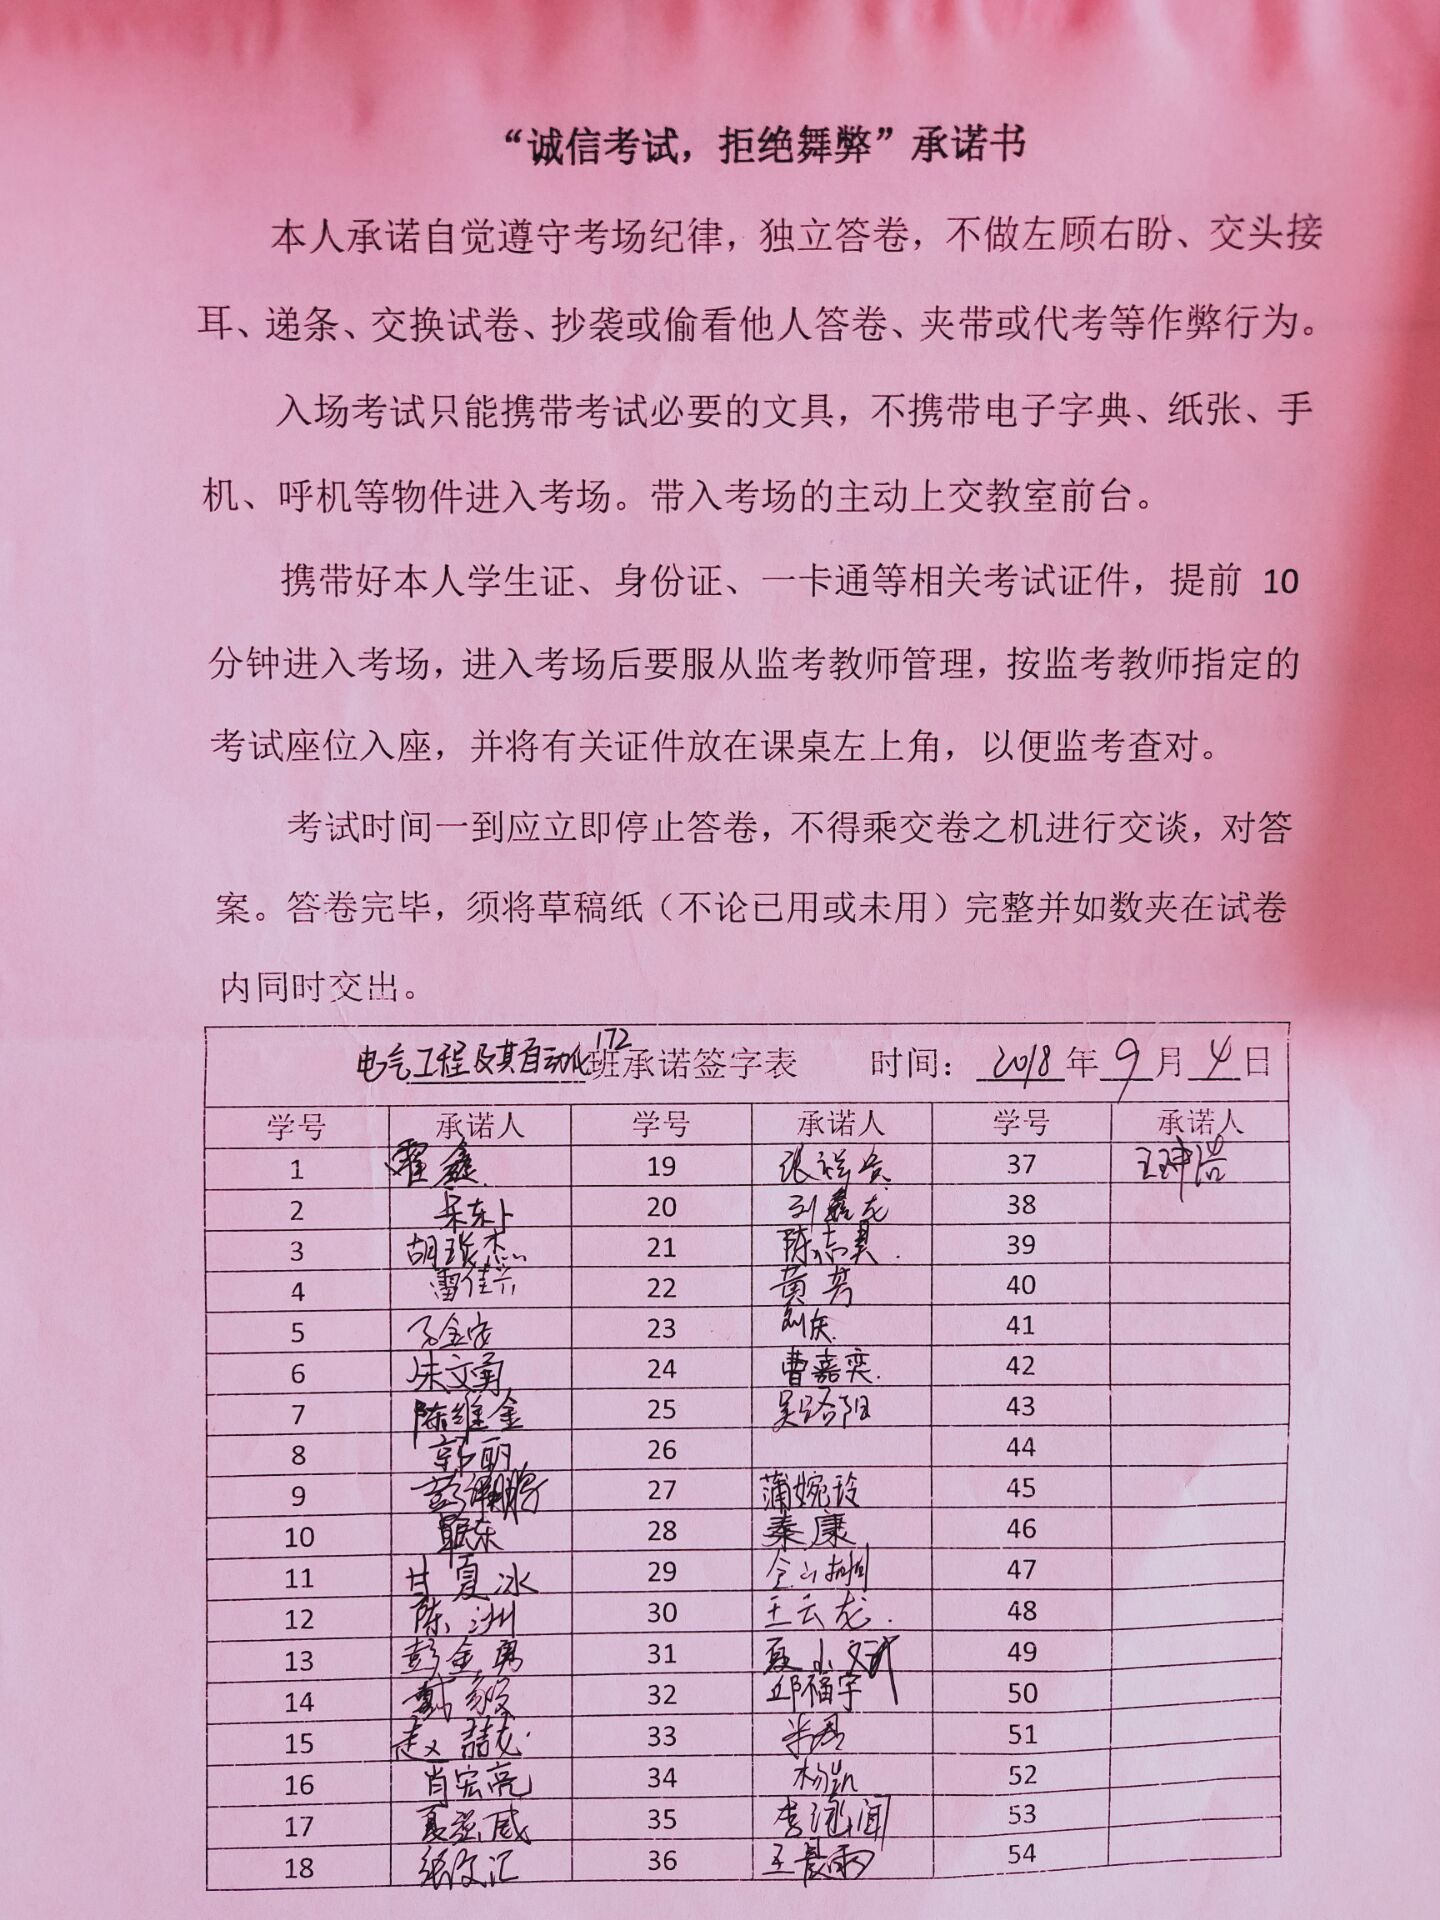 “诚信考试，拒绝舞弊”承诺书
本人承诺自觉遵守考场纪律，独立答卷，不做左顾右盼、交头接
耳、递条、交换试卷、抄袭或偷看他人答卷、夹带或代考等作弊行为。
入场考试只能携带考试必要的文具，不携带电子字典、纸张、手
机、呼机等物件进入考场。带入考场的主动上交教室前台。
携带好本人学生证、身份证、一卡通等相关考试证件，提前 10
分钟进入考场，进入考场后要服从监考教师管理，按监考教师指定的
考试座位入座，并将有关证件放在课桌左上角，以便监考查对。
考试时间一到应立即停止答卷，不得乘交卷之机进行交谈，对答
案。答卷完毕，须将草稿纸（不论已用或未用）完整并如数夹在试卷
内同时交出。
电气工程及其自动化172班承诺签字表 时间：2018年9月4日
学号 承诺人 学号 承诺人 学号 承诺人
1 翟鑫 19 张祥 37 王坤浩
2 20 刘鑫龙 38
3 胡 杰 21 陈志昊 39
4 雷佳兴 22 黄芳 40
5 金安 23 刘庆 41
6 朱文勇 24 曹嘉奕 42
7 陈维金 25 吴路阳 43
8 郭丽 26 44
9 彭 鹏 27 蒲婉玲 45
10 东 28 秦康 46
11 甘夏冰 29 47
12 陈洲 30 王云龙 48
13 彭金勇 31 夏小斌 49
14 戴 32 邱福宇 50
15 赵喆龙 33 米君 51
16 肖宏亮 34 杨凯 52
17 夏强威 35 李 闻 53
18 张俊汇 36 王晨雨 54